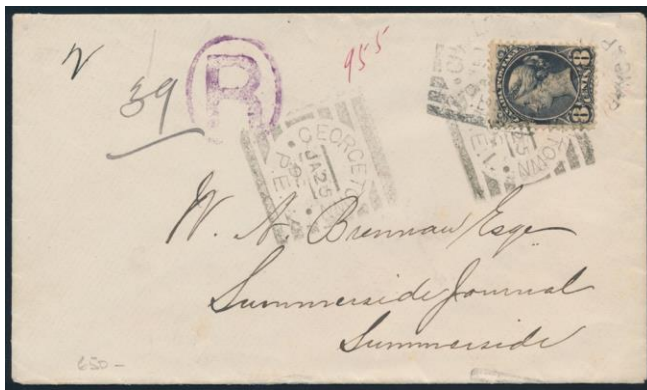 N
39
R
955
GEORGETO
JA 25
P.E.I.
TOWN
8 CENTS 8
W. A. Brennan Esqe
Summerside Journal
Summerside
650-